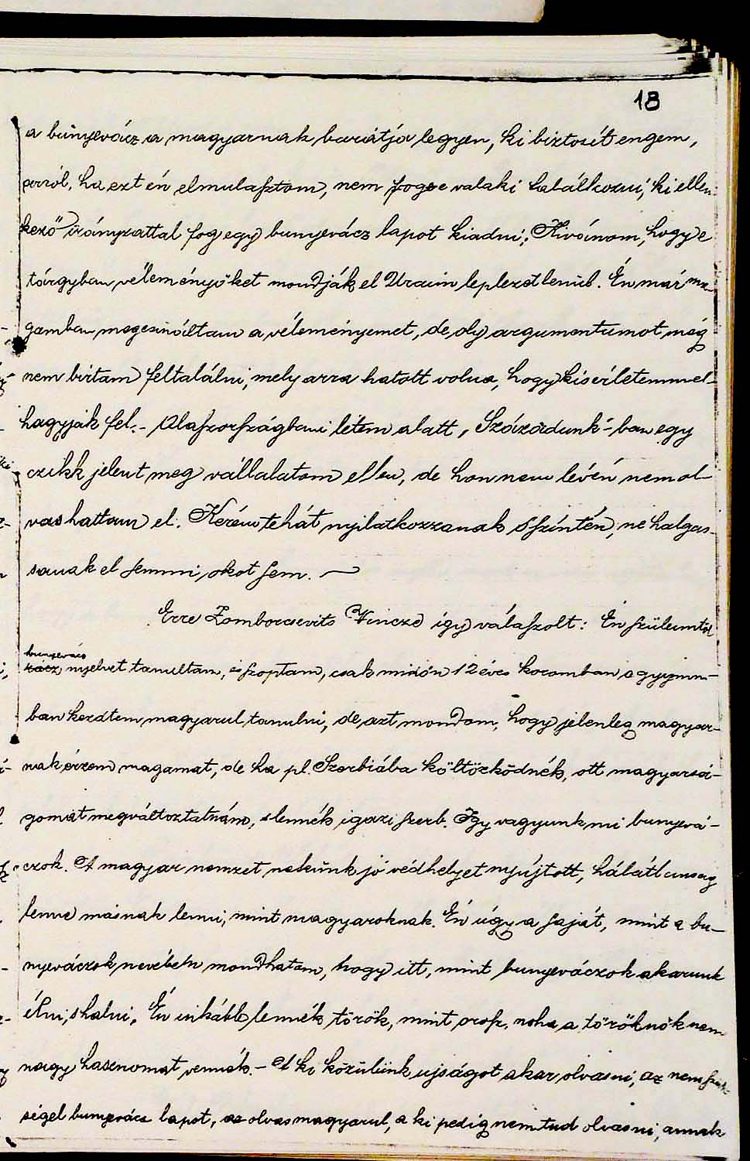 18
a bunyevácz a magyarnak barátja legyen, ki biztosít engem,
arról, ha ezt én elmulasztom, nem fog-e valaki találkozni, ki ellen-
kező irányzattal fog egy bunyevácz lapot kiadni; Kivánom, hogy e
tárgyban véleményöket mondják el Uraim leplezetlenül. Én már ma-
gamban megcsináltam a véleményemet, de oly argumentumot még
nem birtam feltalálni, mely arra hatott volna, hogy kisérletemmel
hagyjak fel. - Olaszországbani létem alatt, Századunk-ban egy
czikk jelent meg vállalatom ellen, de hon nem lévén nem ol-
vashattam el. Kérem tehát nyilatkozzanak őszintén, ne halgas-
sanak el semmi okot sem.
Erre Zomborcsevits Vincze így válaszolt: Én szüleimtől
bunyevácz
rácz nyelvet tanultam, s szoptam, csak midőn 12 éves koromban a gymn-
ban kezdtem magyarul tanulni, de azt mondom, hogy jelenleg magyar-
nak érzem magamat, de ha pl. Szerbiába költözködnék, ott magyarsá-
gomat megváltoztatnám, s lennék igazi szerb. Így vagyunk mi bunyevá-
czok. A magyar nemzet nekünk jó védhelyet nyújtott, hálátlanság
lenne másnak lenni, mint magyaroknak. Én úgy a saját, mint a bu-
nyeváczok nevében mondhatom, hogy itt, mint bunyeváczok akarunk
élni, s halni. Én inkább lennék török, mint orosz, noha a töröknök nem
nagy hasznomat vennék. - A ki közülünk ujságot akar olvasni, az nem szük-
ségel bunyevácz lapot, az olvas magyarul, a ki pedig nem tud olvasni, annak